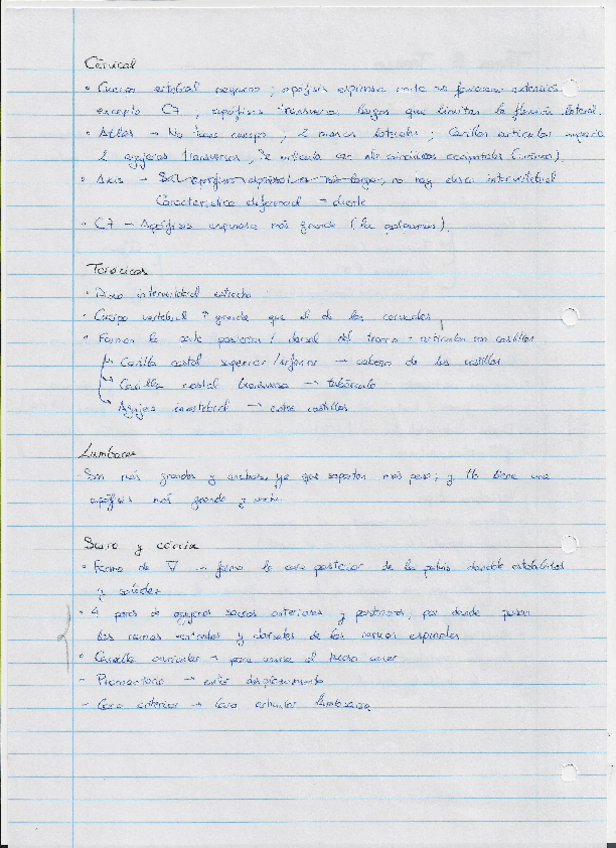 Cervical
• Cuerpo vertebral pequeño ; apófisis espinosa
excepto C7 , apófisis transversa largas que limitan la flexión lateral.
• Atlas → No tiene cuerpo ; 2 masas laterales ; Carillas articular superior
2 agujeros transversos , Se articula con los cóndilos occipitales
• Axis → no hay disco intervertebral
Característica → diente
• C7 → Apófisis espinosa más grande
Torácicas
• Disco intervertebral estrecho
• Cuerpo vertebral + grande que el de las cervicales
• Forman la parte posterior / dorsal del tórax → articulan con costillas
Carilla costal superior / inferior → cabeza de las costillas
Carilla costal transversa → tubérculo
Agujero → entre costillas
Lumbares
Son más grandes y anchas ya que soportan más peso ; y tiene una
apófisis más grande y
Sacro y cóccix
• Forma de ▽ → forma la cara posterior de la pelvis dándole estabilidad
y solidez
• 4 pares de agujeros sacros anteriores y posteriores, por donde pasan
las ramas ventrales y dorsales de los nervios espinales
• Carilla auricular → para unirse al hueso coxal
- Promontorio → evita desplazamiento
- Cara anterior → Cara articular lumbosacra